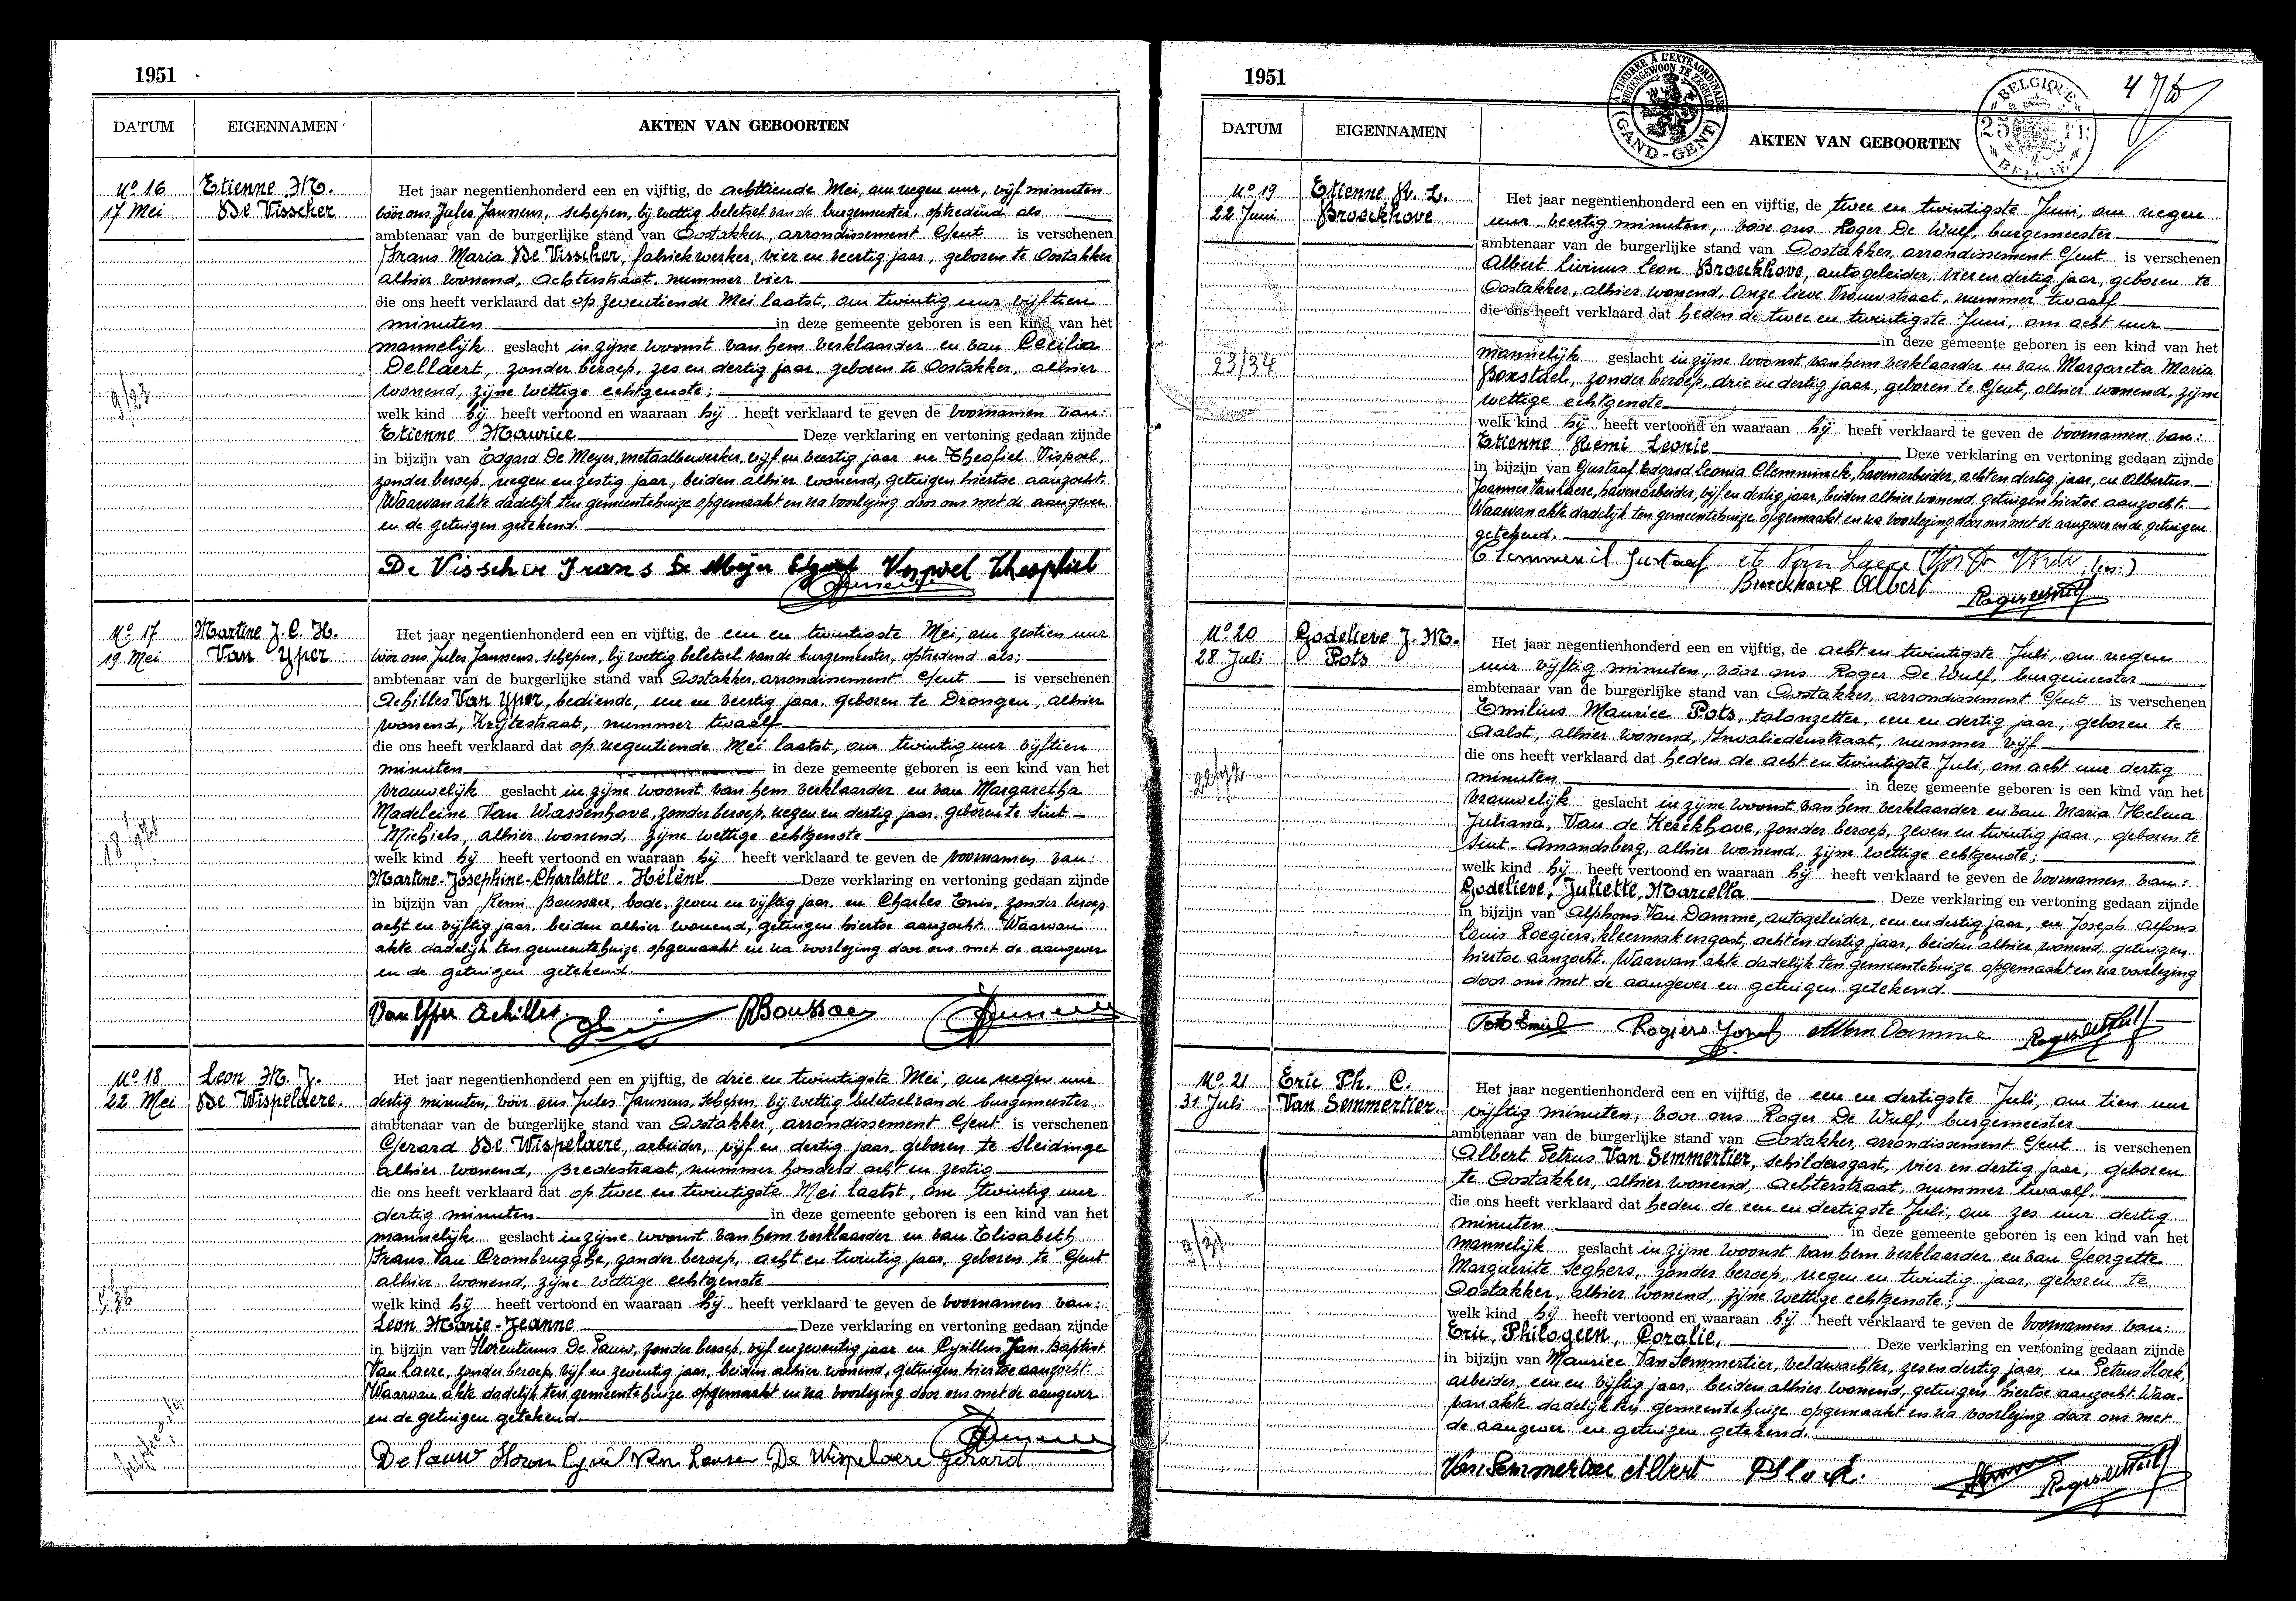 1951
DATUM EIGENNAMEN AKTEN VAN GEBOORTEN
No 16
17 Mei
Etienne M.
De Visscher
Het jaar negentienhonderd een en vijftig, de achttiende Mei, om negen uur, vijf minuten
vóór ons Jules Janssens, schepen, bij wettig beletsel van de burgemeester, optredend als
ambtenaar van de burgerlijke stand van Oostakker, arrondissement Gent is verschenen
Frans Maria De Visscher, fabriekwerker, vier en veertig jaar, geboren te Oostakker
alhier wonend, Achterstraat, nummer vier
die ons heeft verklaard dat op zeventiende Mei laatst, om twintig uur vijftien
minuten in deze gemeente geboren is een kind van het
mannelijk geslacht in zijne woonst van hem verklaarder en van Cecilia
Dellaert, zonder beroep, zes en dertig jaar, geboren te Oostakker, alhier
wonend, zijne wettige echtgenote;
welk kind hij heeft vertoond en waaraan hij heeft verklaard te geven de voornamen van:
Etienne Maurice Deze verklaring en vertoning gedaan zijnde
in bijzijn van Edgard De Meyer, metaalbewerker, vijf en veertig jaar en Theofiel Vispoel,
zonder beroep, negen en zestig jaar, beiden alhier wonend, getuigen hiertoe aanzocht.
Waarvan akte dadelijk ten gemeentehuize opgemaakt en na voorlezing door ons met de aangever
en de getuigen getekend.
De Visscher Frans De Meyer Edgard Vispoel Theophiel
9/23
No 17
19 Mei
Martine J. C. H.
Van Yper
Het jaar negentienhonderd een en vijftig, de een en twintigste Mei, om zestien uur
vóór ons Jules Janssens, schepen, bij wettig beletsel van de burgemeester, optredend als;
ambtenaar van de burgerlijke stand van Oostakker, arrondissement Gent is verschenen
Achilles Van Yper, bediende, een en veertig jaar, geboren te Drongen, alhier
wonend, Krijtestraat, nummer twaalf
die ons heeft verklaard dat op negentiende Mei laatst, om twintig uur vijftien
minuten in deze gemeente geboren is een kind van het
vrouwelijk geslacht in zijne woonst van hem verklaarder en van Margaretha
Madeleine Van Wassenhove, zonder beroep, negen en dertig jaar, geboren te Sint-
Michiels, alhier wonend, zijne wettige echtgenote
welk kind hij heeft vertoond en waaraan hij heeft verklaard te geven de voornamen van:
Martine-Josephine-Charlotte-Hélène Deze verklaring en vertoning gedaan zijnde
in bijzijn van Remi Boussaer, bode, zeven en vijftig jaar en Charles Enis, zonder beroep
acht en vijftig jaar, beiden alhier wonend, getuigen hiertoe aanzocht. Waarvan
akte dadelijk ten gemeentehuize opgemaakt en na voorlezing door ons met de aangever
en de getuigen getekend.
Van Yper Achilles. RBoussaer
No 18
22 Mei
Leon M. J.
De Wispelaere.
Het jaar negentienhonderd een en vijftig, de drie en twintigste Mei, om negen uur
dertig minuten, vóór ons Jules Janssens, schepen, bij wettig beletsel van de burgemeester
ambtenaar van de burgerlijke stand van Oostakker, arrondissement Gent is verschenen
Gerard De Wispelaere, arbeider, vijf en dertig jaar, geboren te Sleidinge
alhier wonend, Bredestraat, nummer honderd acht en zestig
die ons heeft verklaard dat op twee en twintigste Mei laatst, om twintig uur
dertig minuten in deze gemeente geboren is een kind van het
mannelijk geslacht in zijne woonst van hem verklaarder en van Elisabeth
Frans Van Crombrugghe, zonder beroep, acht en twintig jaar, geboren te Gent
alhier wonend, zijne wettige echtgenote
welk kind hij heeft vertoond en waaraan hij heeft verklaard te geven de voornamen van:
Leon Marie-Jeanne Deze verklaring en vertoning gedaan zijnde
in bijzijn van Florentinus De Pauw, zonder beroep, vijf en zeventig jaar en Cyrillus Jan Baptist
Van Laere, zonder beroep, vijf en zeventig jaar, beiden alhier wonend, getuigen hiertoe aanzocht.
Waarvan akte dadelijk ten gemeentehuize opgemaakt en na voorlezing door ons met de aangever
en de getuigen getekend.
De Pauw Floran Cyriel Van Laere De Wispelaere Gerard
1951
À TIMBRER À L'EXTRAORDINAIRE
BUITENGEWOON TE ZEGELEN
(GAND-GENT)
BELGIQUE
BELGIË
DATUM EIGENNAMEN AKTEN VAN GEBOORTEN
No 19
22 Juni
Etienne R. L.
Broeckhove
Het jaar negentienhonderd een en vijftig, de twee en twintigste Juni, om negen
uur, veertig minuten, vóór ons Roger De Wulf, burgemeester
ambtenaar van de burgerlijke stand van Oostakker, arrondissement Gent is verschenen
Albert Livinus Leon Broeckhove, autogeleider, vier en dertig jaar, geboren te
Oostakker, alhier wonend, Onze Lieve Vrouwstraat, nummer twaalf
die ons heeft verklaard dat heden de twee en twintigste Juni, om acht uur
in deze gemeente geboren is een kind van het
mannelijk geslacht in zijne woonst van hem verklaarder en van Margareta Maria
Boxstael, zonder beroep, drie en dertig jaar, geboren te Gent, alhier wonend, zijne
wettige echtgenote
welk kind hij heeft vertoond en waaraan hij heeft verklaard te geven de voornamen van:
Etienne Remi Leonie Deze verklaring en vertoning gedaan zijnde
in bijzijn van Gustaaf Edgard Leonia Clemminck, havenarbeider, acht en dertig jaar, en Albertus
Joannes Van Laere, havenarbeider, vijf en dertig jaar, beiden alhier wonend, getuigen hiertoe aanzocht.
Waarvan akte dadelijk ten gemeentehuize opgemaakt en na voorlezing door ons met de aangever en de getuigen
getekend.
Gustaaf Van Laere
Broeckhove Albert
23/34
No 20
28 Juli
Godelieve J. M.
Pots
Het jaar negentienhonderd een en vijftig, de acht en twintigste Juli, om negen
uur vijftig minuten, vóór ons Roger De Wulf, burgemeester
ambtenaar van de burgerlijke stand van Oostakker, arrondissement Gent is verschenen
Emilius Maurice Pots, talonzetter, een en dertig jaar, geboren te
Aalst, alhier wonend, Invaliedenstraat, nummer vijf
die ons heeft verklaard dat heden de acht en twintigste Juli, om acht uur dertig
minuten in deze gemeente geboren is een kind van het
vrouwelijk geslacht in zijne woonst van hem verklaarder en van Maria Helena
Juliana, Van de Kerckhove, zonder beroep, zeven en twintig jaar, geboren te
Sint-Amandsberg, alhier wonend, zijne wettige echtgenote;
welk kind hij heeft vertoond en waaraan hij heeft verklaard te geven de voornamen van:
Godelieve, Juliette, Marcella Deze verklaring en vertoning gedaan zijnde
in bijzijn van Alphons Van Damme, autogeleider, een en dertig jaar, en Joseph Alfons
Louis Roegiers, kleermakersgast, acht en dertig jaar, beiden alhier wonend, getuigen
hiertoe aanzocht. Waarvan akte dadelijk ten gemeentehuize opgemaakt en na voorlezing
door ons met de aangever en getuigen getekend.
Pots Emiel Rogiers Jozef A Van Damme
No 21
31 Juli
Eric Ph. C.
Van Semmertier.
Het jaar negentienhonderd een en vijftig, de een en dertigste Juli, om tien uur
vijftig minuten, voor ons Roger De Wulf, burgemeester
ambtenaar van de burgerlijke stand van Oostakker, arrondissement Gent is verschenen
Albert Petrus Van Semmertier, schildersgast, vier en dertig jaar, geboren
te Oostakker, alhier wonend, Achterstraat, nummer twaalf.
die ons heeft verklaard dat heden de een en dertigste Juli, om zes uur dertig
minuten in deze gemeente geboren is een kind van het
mannelijk geslacht in zijne woonst van hem verklaarder en van Georgette
Marguerite Seghers, zonder beroep, negen en twintig jaar, geboren te
Oostakker, alhier wonend, zijne wettige echtgenote;
welk kind hij heeft vertoond en waaraan hij heeft verklaard te geven de voornamen van:
Eric, Philogeen, Coralie, Deze verklaring en vertoning gedaan zijnde
in bijzijn van Maurice Van Semmertier, veldwachter, zes en dertig jaar en Petrus Slock,
arbeider, een en vijftig jaar, beiden alhier wonend, getuigen hiertoe aanzocht. Waar-
van akte dadelijk ten gemeentehuize opgemaakt en na voorlezing door ons met
de aangever en getuigen getekend.
Van Semmertier Albert P Slock.
9/31